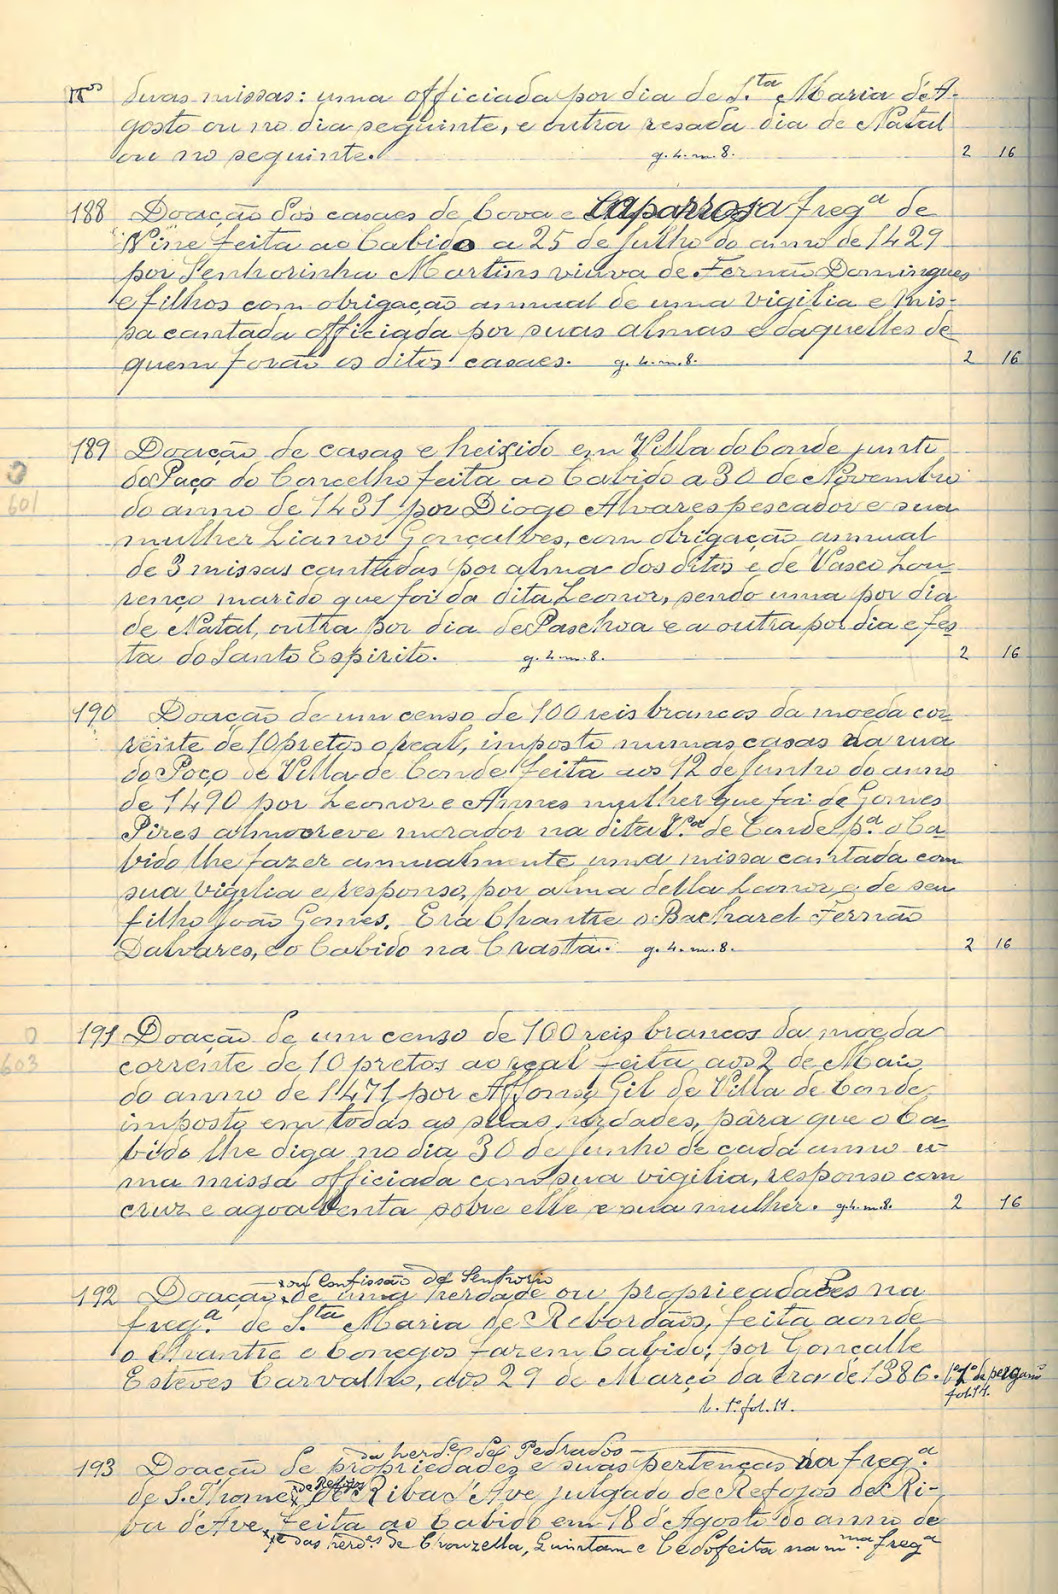 Nos duas missas: uma officiada por dia de S.ta Maria de A-
gosto ou no dia seguinte, e outra resada dia de Natal
ou no seguinte. g. 4. m. 8. 2 16
188 Doação dos casaes de Cova e Caparrosa freg.a de
Nine feita ao Cabido a 25 de Julho do anno de 1429
por Senhorinha Martins viuva de Fernão Domingues
e filhos com obrigação annual de uma vigilia e mis-
sa cantada officiada por suas almas e daquelles de
quem forão os ditos casaes. g. 4. m. 8. 2 16
189 Doação de casas e heixido em Villa do Conde junto
do Paço do Concelho feita ao Cabido a 30 de Novembro
601
do anno de 1431 por Diogo Alvares pescador e sua
mulher Lianor Gonçalves, com obrigação annual
de 3 missas cantadas por alma dos ditos e de Vasco Lou-
renço marido que foi da dita Leonor, sendo uma por dia
de Natal, outra por dia de Paschoa e a outra por dia e fes-
ta do Santo Espirito. g. 4. m. 8. 2 16
190 Doação de um censo de 100 reis brancos da moeda cor-
rente de 10 pretos o real, imposto numas casas da rua
do Poço de Villa de Conde feita aos 12 de Junho do anno
de 1490 por Leonor e Annes mulher que foi de Gomes
Pires almocreve morador na dita V.a de Conde p.a o Ca-
bido lhe fazer annualmente uma missa cantada com
sua vigilia e responso, por alma della Leonor e de seu
filho João Gomes. Era Chantre o Bacharel Fernão
Dalvares, e o Cabido na Crasta. g. 4. m. 8. 2 16
191 Doação de um censo de 100 reis brancos da moeda
603 corrente de 10 pretos ao real feita aos 2 de Maio
do anno de 1471 por Affonso Gil de Villa de Conde,
imposto em todas as suas herdades, para que o Ca-
bido lhe diga no dia 30 de Junho de cada anno u-
ma missa officiada com sua vigilia, responso com
cruz e agoa benta sobre elle e sua mulher. g. 4. m. 8. 2 16
ou Confissão de Senhorio
192 Doação de uma herdade ou propriedades na
freg.a de S.ta Maria de Rebordãos, feita aonde
o Chantre e Conegos fazem Cabido, por Gonçallo
Esteves Carvalho, aos 29 de Março da era de 1386. l.o 1.o de pergam
fol. 14.
L. 1.o fol. 11.
da herd.e de Pedrados
193 Doação de propriedades e suas pertenças na freg.a
de Refojos
de S. Thomé de Riba d'Ave julgado de Refojos de Ri-
ba d'Ave, feita ao Cabido em 18 d'Agosto do anno de
e das herd.es de Chouzella, Quintam e Cedofeita na m.ma freg.a